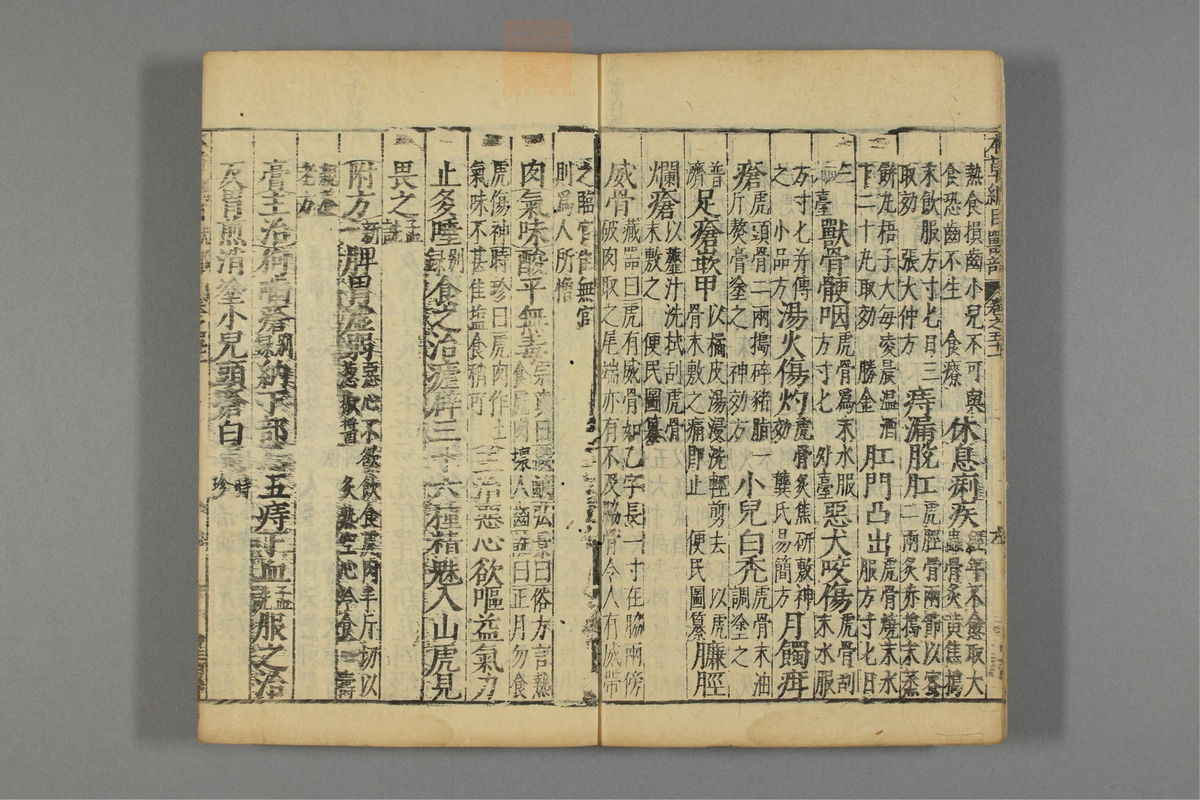 本草綱目獸部 卷之五十一
熱食損齒小兒不可與
食恐齒不生 食療
休息痢疾
經年不愈取大
蟲骨炙黃焦搗
末飲服方寸匕日三
取効 張大仲方
痔漏脫肛
虎脛骨兩節以蜜
二兩炙赤搗末蒸
餅丸梧子大每凌晨溫酒
下二十丸取効 勝金
肛門凸出
虎骨燒末水
服方寸匕日
三
外臺
獸骨骾咽
虎骨爲末水服
方寸匕 外臺
惡犬咬傷
虎骨刮
末水服
方寸匕并傅
之 小品方
湯火傷灼
虎骨炙焦研敷神
龔氏易簡方
月髑疳
瘡
虎頭骨二兩搗碎豬脂一
斤熬膏塗之 神効方
小兒白禿
虎骨末油
調塗之
普
濟
足瘡嵌甲
以橘皮湯浸洗輕剪去 以虎
骨末敷之痛即止 便民圖纂
臁脛
爛瘡
以虀汁洗拭刮虎骨
末敷之 便民圖纂
威骨
藏器曰虎有威骨如乙字長一寸在脇兩傍
破肉取之尾端亦有不及脇骨令人有威帶
之臨官佳無官
則爲人所憎
肉氣味酸平無毒
宗奭曰微醎弘景曰俗方言熱
食虎肉壞人齒詵曰正月勿食
虎傷神時珍曰虎肉作土
氣味不甚佳盐食稍可
主治惡心欲嘔益氣力
止多唾
別
錄
食之治瘧辟三十六種精魅入山虎見
畏之
孟
詵
附方
新
一
脾胃虛弱
惡心不欲飲食虎肉半斤切以
葱椒醬炙熟空心冷食 壽
親養
老方
膏主治狗嚙瘡
別
錄
納下部治五痔下血
孟
詵
服之治
反胃煎消塗小兒頭瘡白禿
時
珍